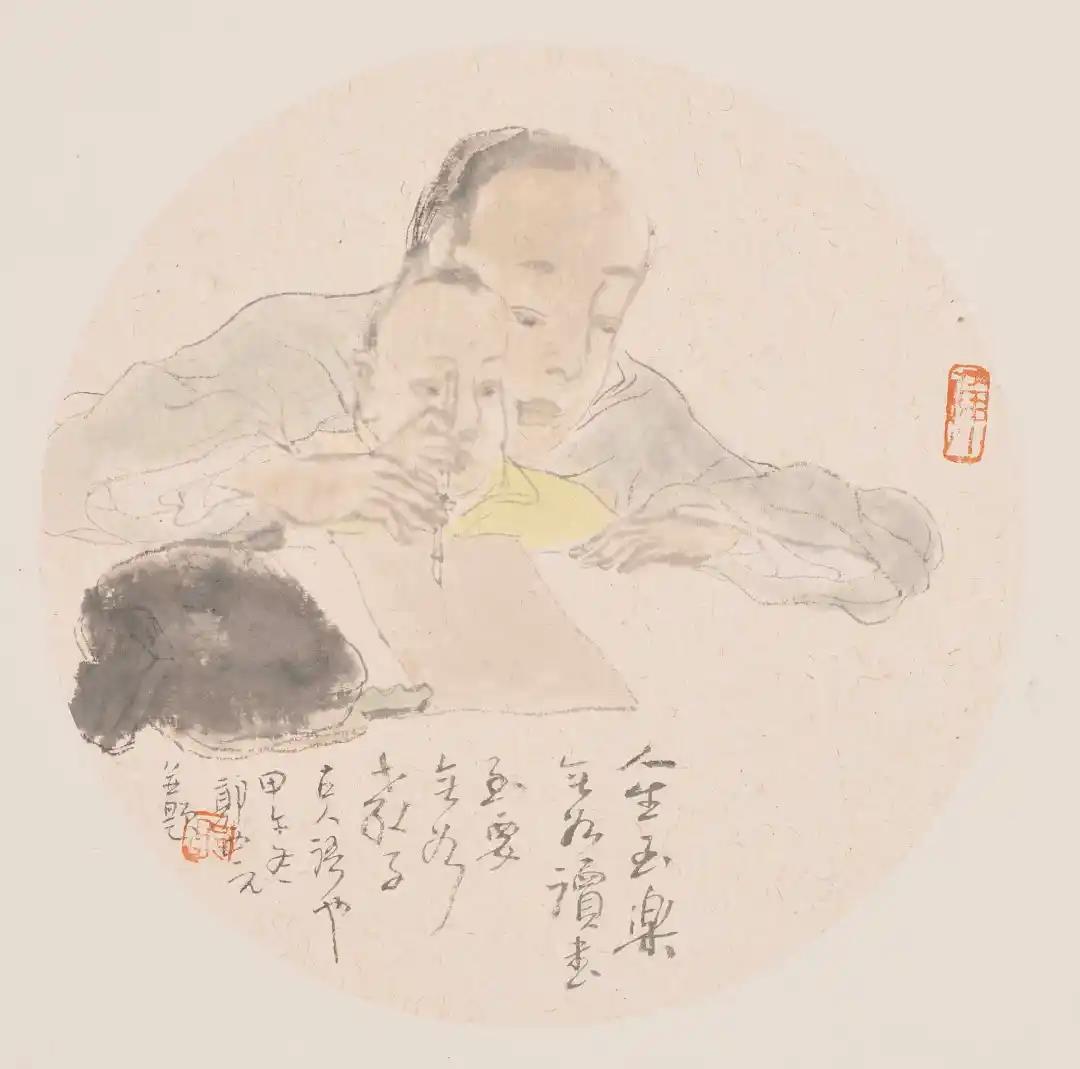 人生至樂
無如讀書
至要
無如
教子
古人語也
甲午冬
郭西元
並題